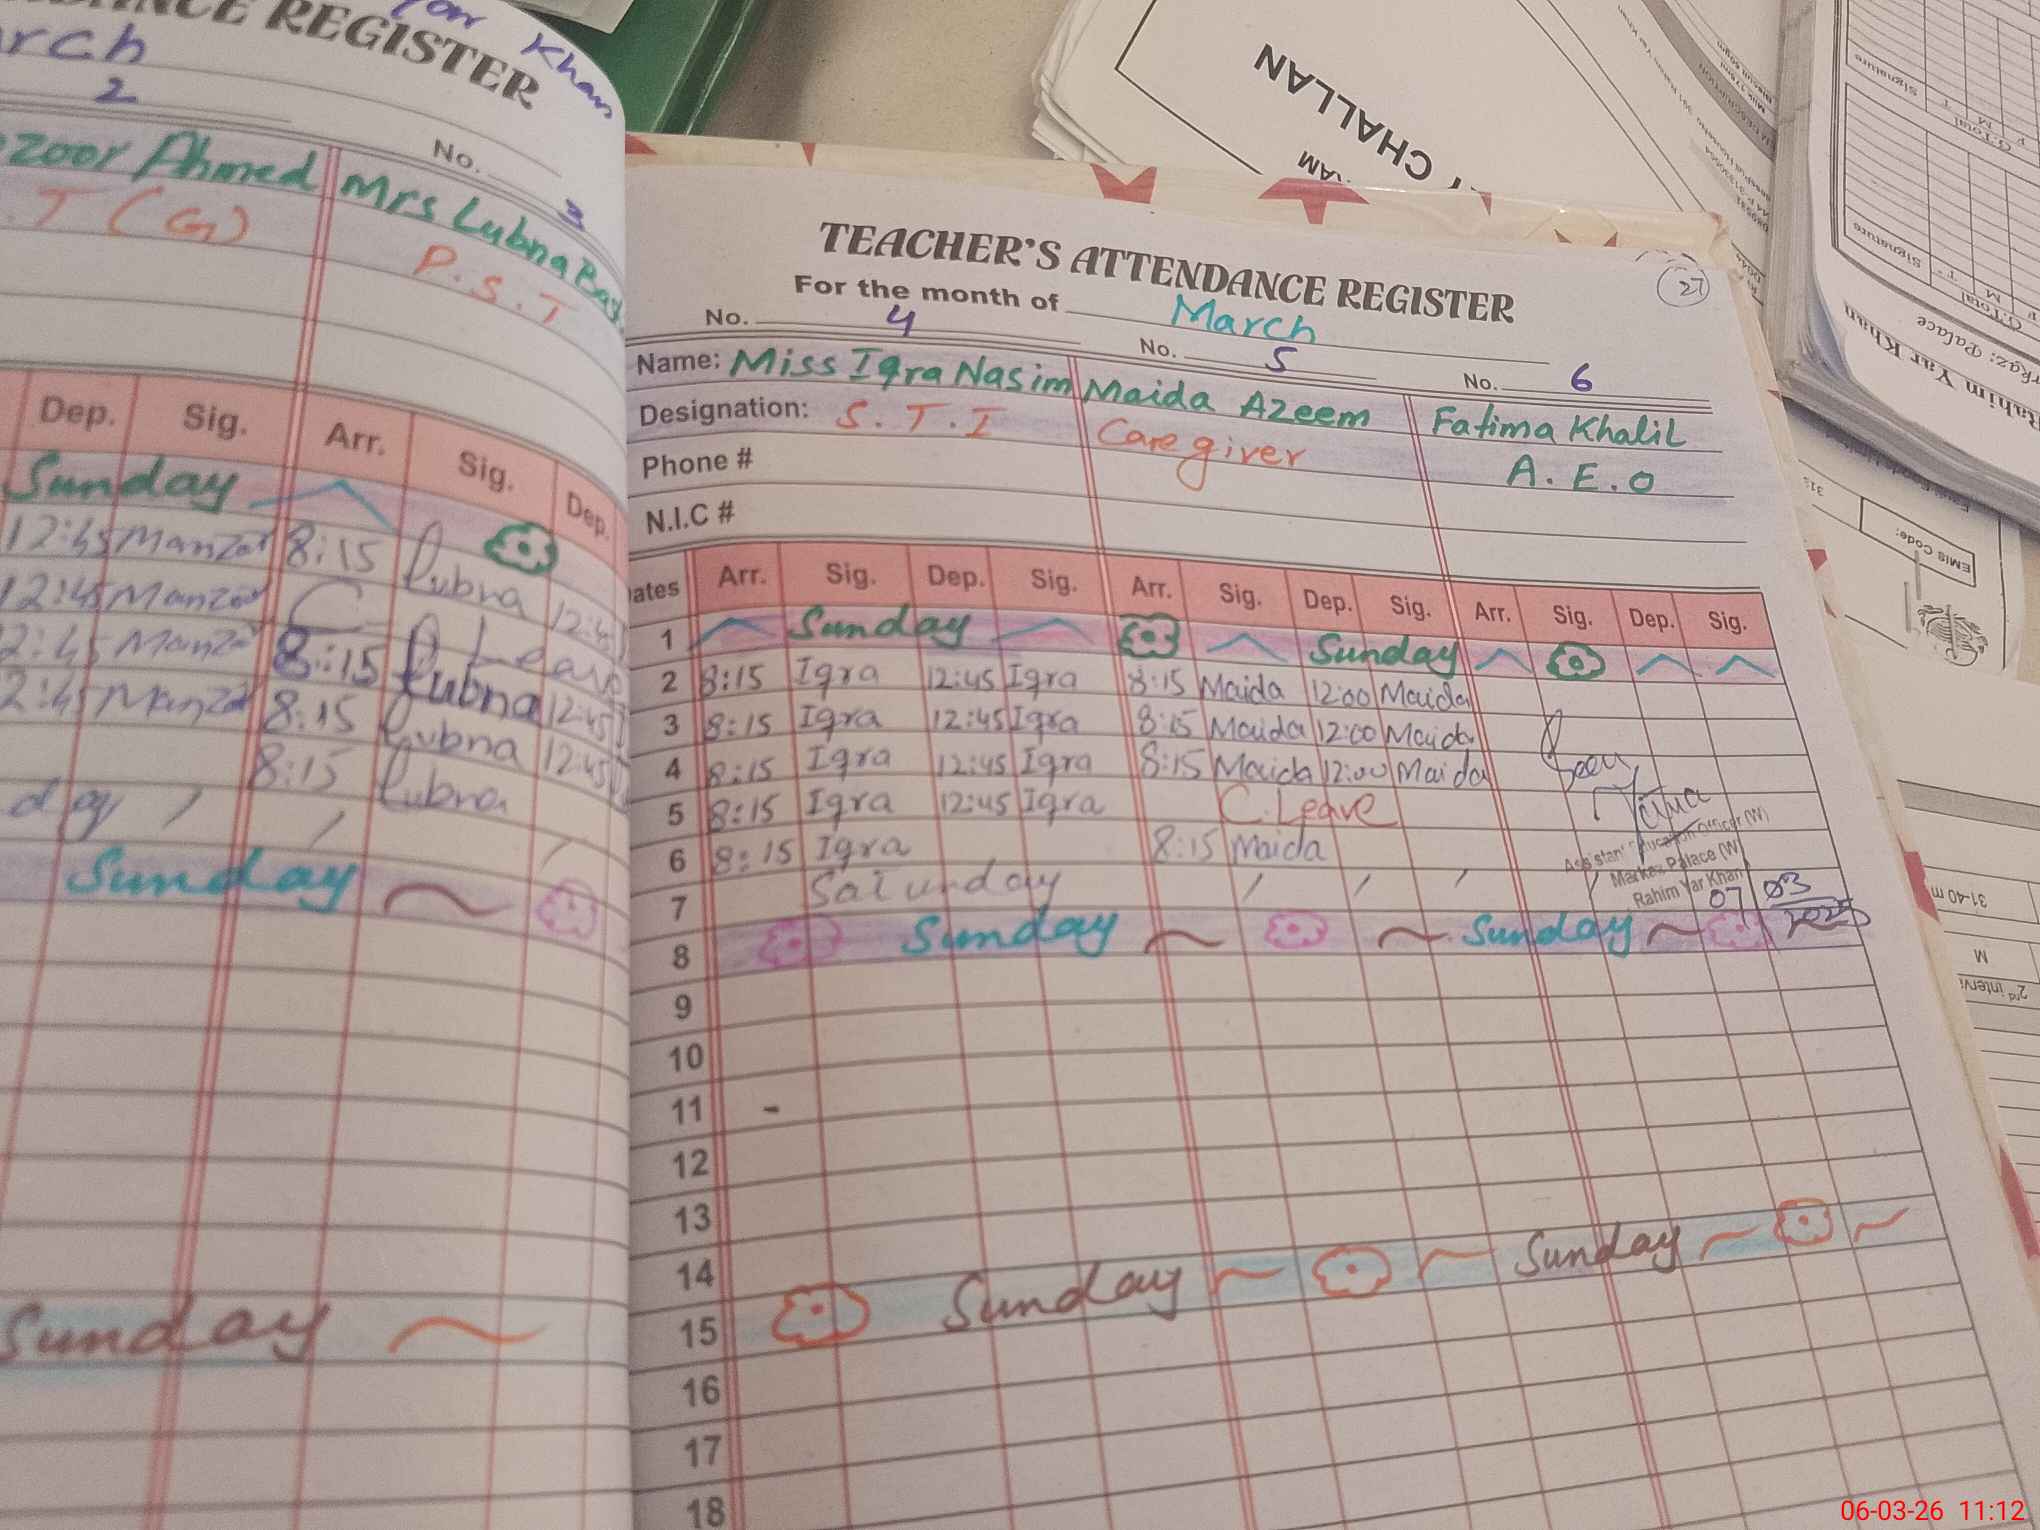 CE REGISTER
Khan
rch
2
No. 3
zoor Ahmed Mrs Lubna
. T (G) P.S.T
Dep. Sig. Arr. Sig. Dep.
Sunday
12:45 Manzor 8:15 Lubna 12:45
12:45 Manzor C. Leave
2:45 Manzor 8:15 Lubna 12:45
2:45 Manzor 8:15 Lubna 12:45
8:15 Lubna
day
Sunday
Sunday
TEACHER'S ATTENDANCE REGISTER
27
For the month of March
No. 4 No. 5 No. 6
Name: Miss Iqra Nasim Maida Azeem Fatima Khalil
Designation: S.T.I Care giver A.E.O
Phone #
N.I.C #
ates Arr. Sig. Dep. Sig. Arr. Sig. Dep. Sig. Arr. Sig. Dep. Sig.
1 Sunday Sunday
2 8:15 Iqra 12:45 Iqra 8:15 Maida 12:00 Maida
3 8:15 Iqra 12:45 Iqra 8:15 Maida 12:00 Maida
4 8:15 Iqra 12:45 Iqra 8:15 Maida 12:00 Maida Seen
5 8:15 Iqra 12:45 Iqra C.Leave
6 8:15 Iqra 8:15 Maida
Assistant Education Officer (W)
Markaz Palace (W)
Rahim Yar Khan
07 03
7 Saturday
8 Sunday Sunday
9
10
11 -
12
13
14
15 Sunday Sunday
16
17
18
CHALLAN
Signature
G.Total
Signature
G.Total
Rahim Yar Khan
rkaz: Palace
EMIS Code:
31-40 m
M
06-03-26 11:12